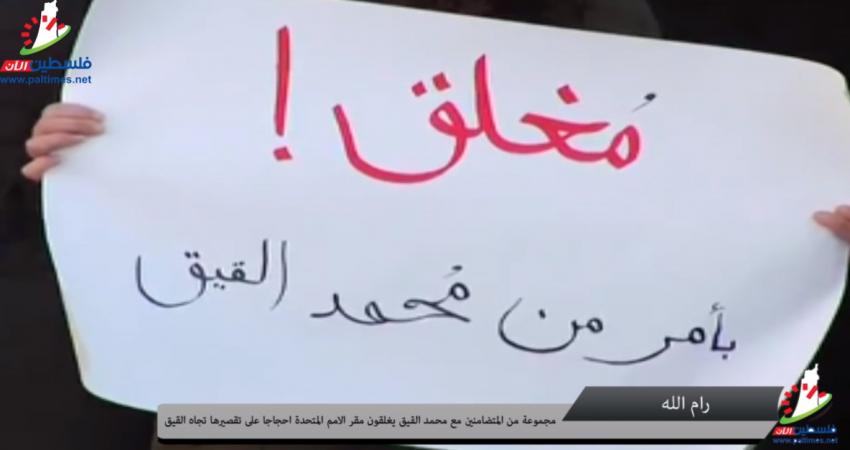 فلسطين الآن
www.paltimes.net
مُغلق !
بأمر من مُحمد القيق
رام الله
مجموعة من المتضامنين مع محمد القيق يغلقون مقر الامم المتحدة احتجاجا على تقصيرها تجاه القيق
فلسطين الآن
www.paltimes.net